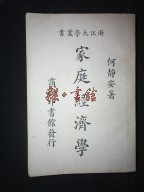 浙江大學叢書
何靜安著
家庭經濟學
商務印書館發行